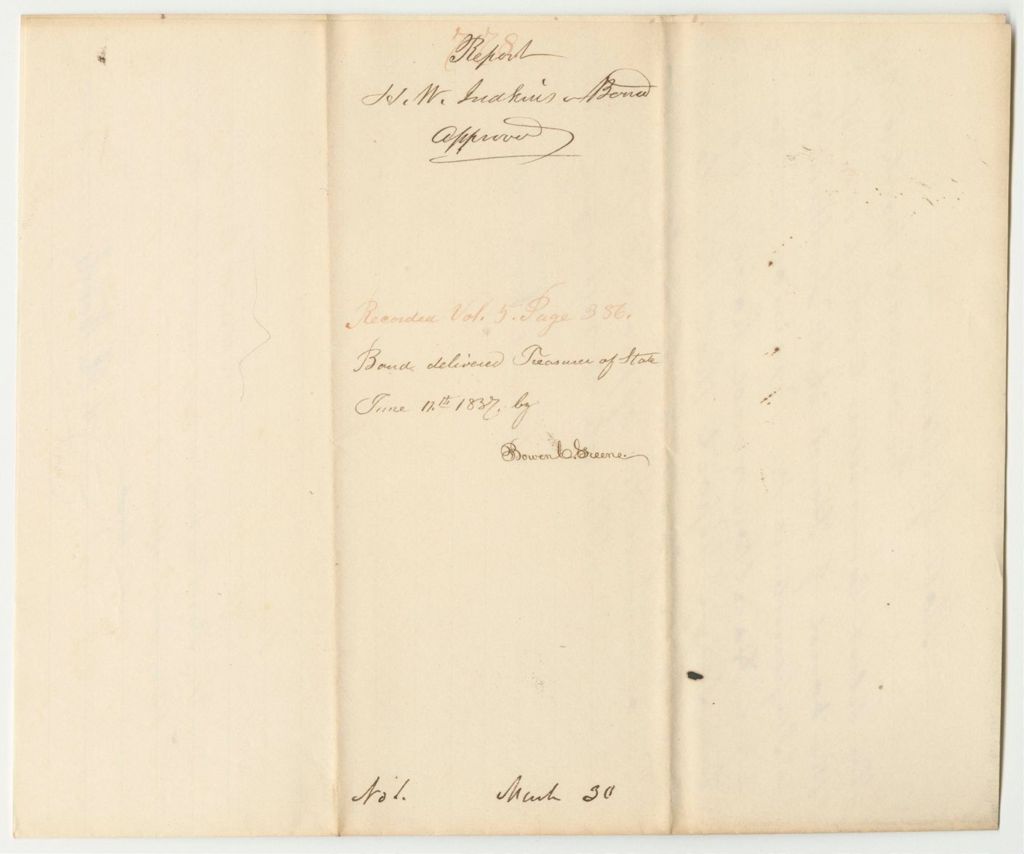 778
Report
H. W. Judkins' Bond
Approved
Recorded Vol. 5. Page 386.
Bond delivered Treasurer of State
June 17th 1837. by
Bowen C. Greene
No 1. March 30